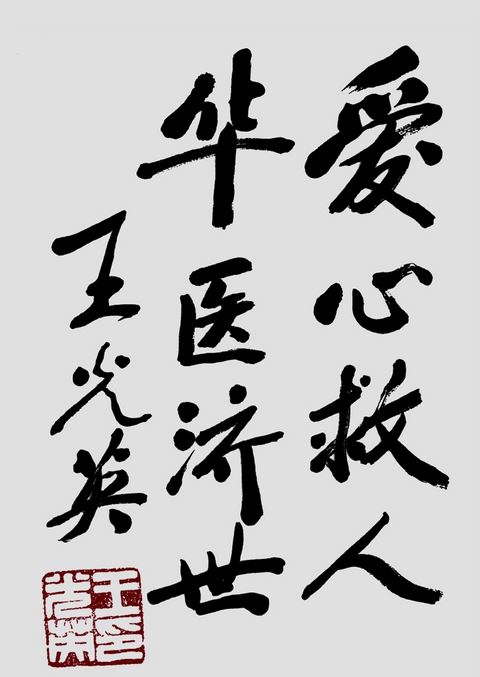 爱心救人
华医济世
王光英
王光英印